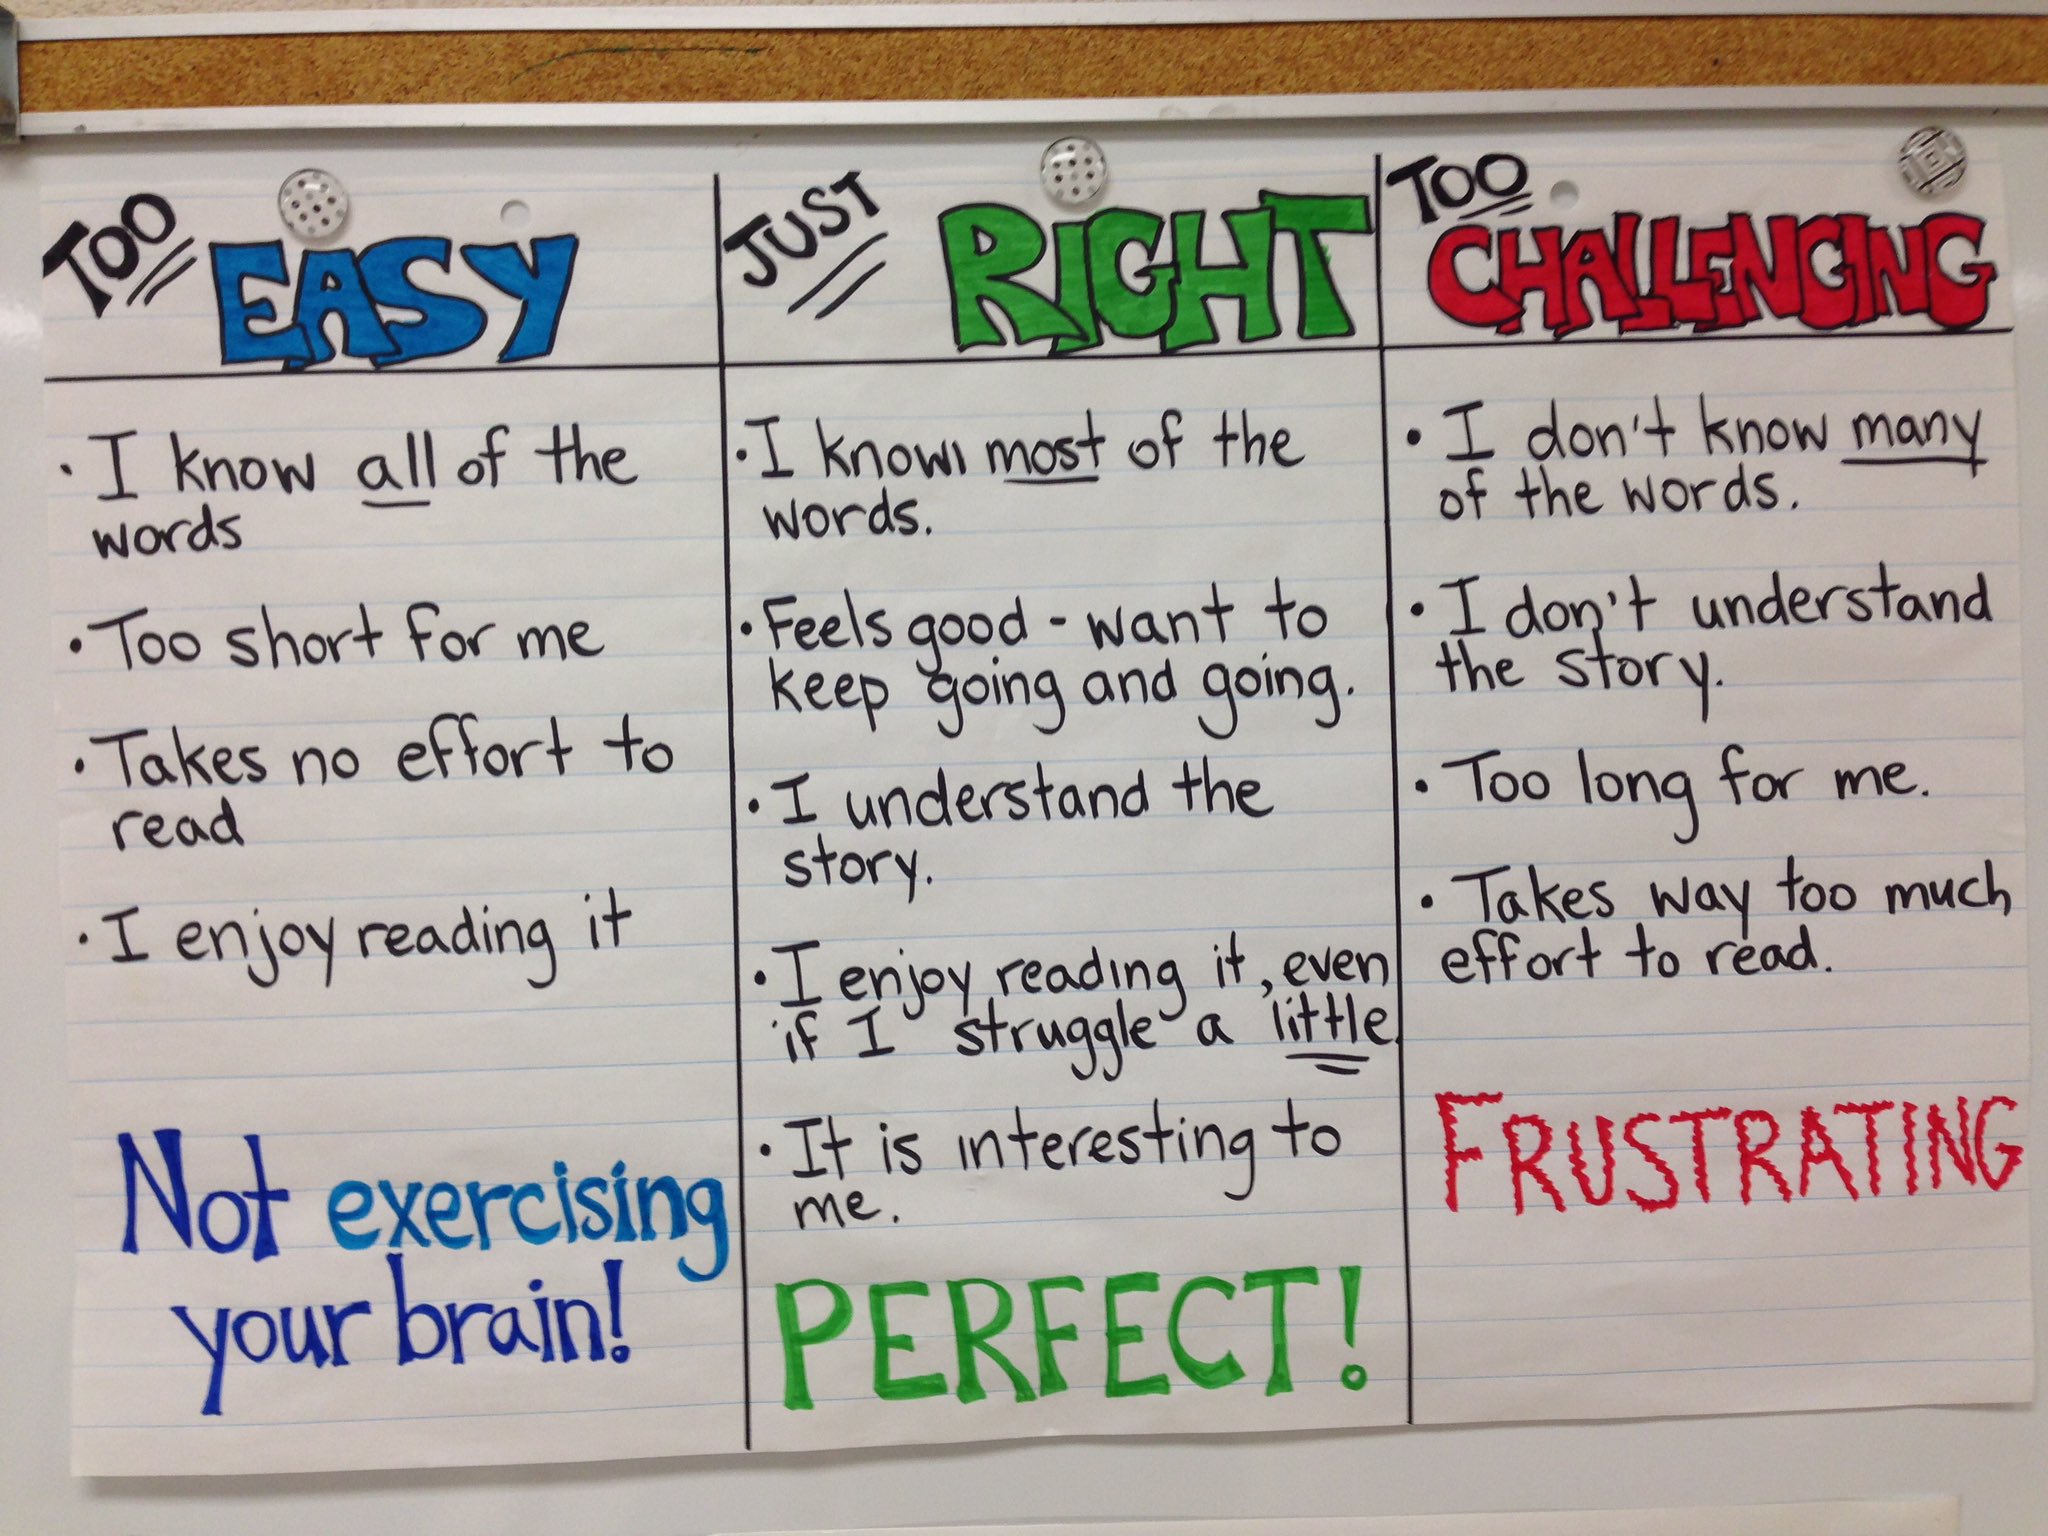 TOO EASY
• I know all of the
words
• Too short for me
• Takes no effort to
read
• I enjoy reading it
Not exercising
your brain!
JUST RIGHT
• I know most of the
words.
• Feels good - want to
keep going and going.
• I understand the
story.
• I enjoy reading it, even
if I struggle a little.
• It is interesting to
me.
PERFECT!
TOO CHALLENGING
• I don't know many
of the words.
• I don't understand
the story.
• Too long for me.
• Takes way too much
effort to read.
FRUSTRATING